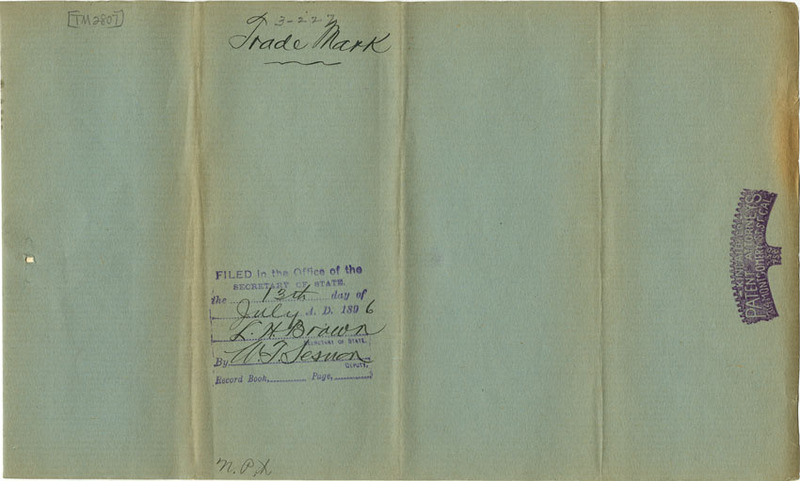 [TM2807]
3-227
Trade Mark
FILED in the Office of the
SECRETARY OF STATE.
the 13th day of
July A. D. 1896
L. H. Brown
SECRETARY OF STATE.
By W. T. Sesnon
DEPUTY.
Record Book, Page,
PATENT ATTORNEYS
MONTGOMERY ST. S.F. CAL.